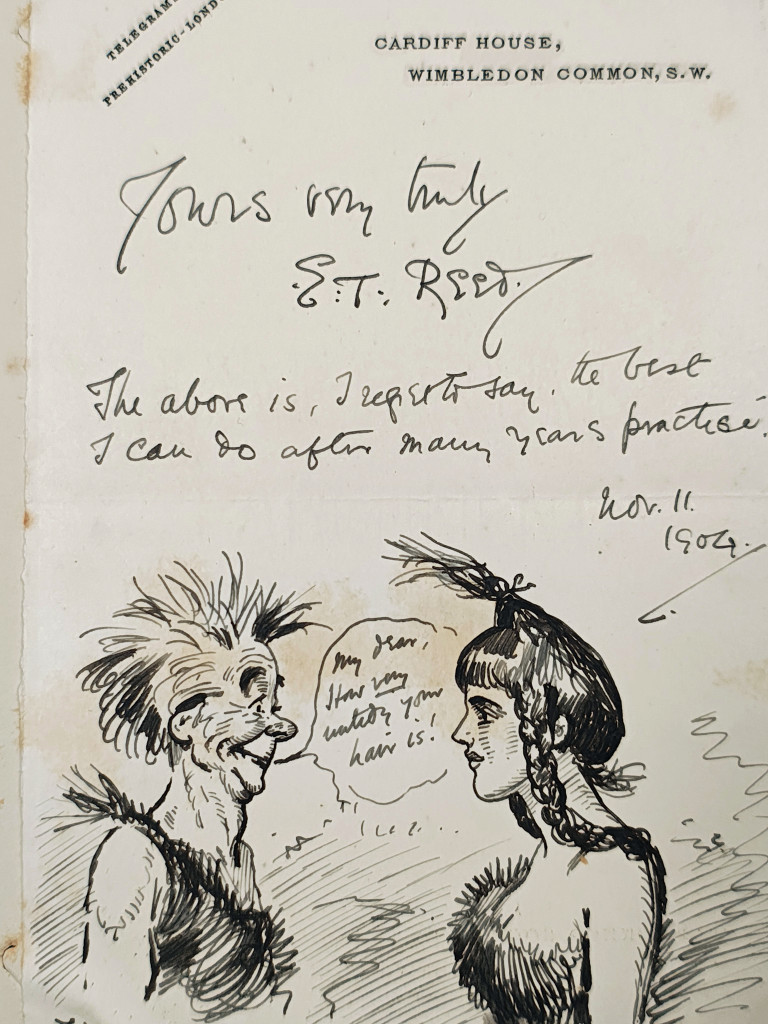 TELEGRAM
PREHISTORIC-LOND
CARDIFF HOUSE,
WIMBLEDON COMMON, S.W.
Yours very truly
E.T. Reed.
The above is, I regret to say, the best
I can do after many years practise.
Nov. 11.
1904.
My dear,
How very
untidy your
hair is!